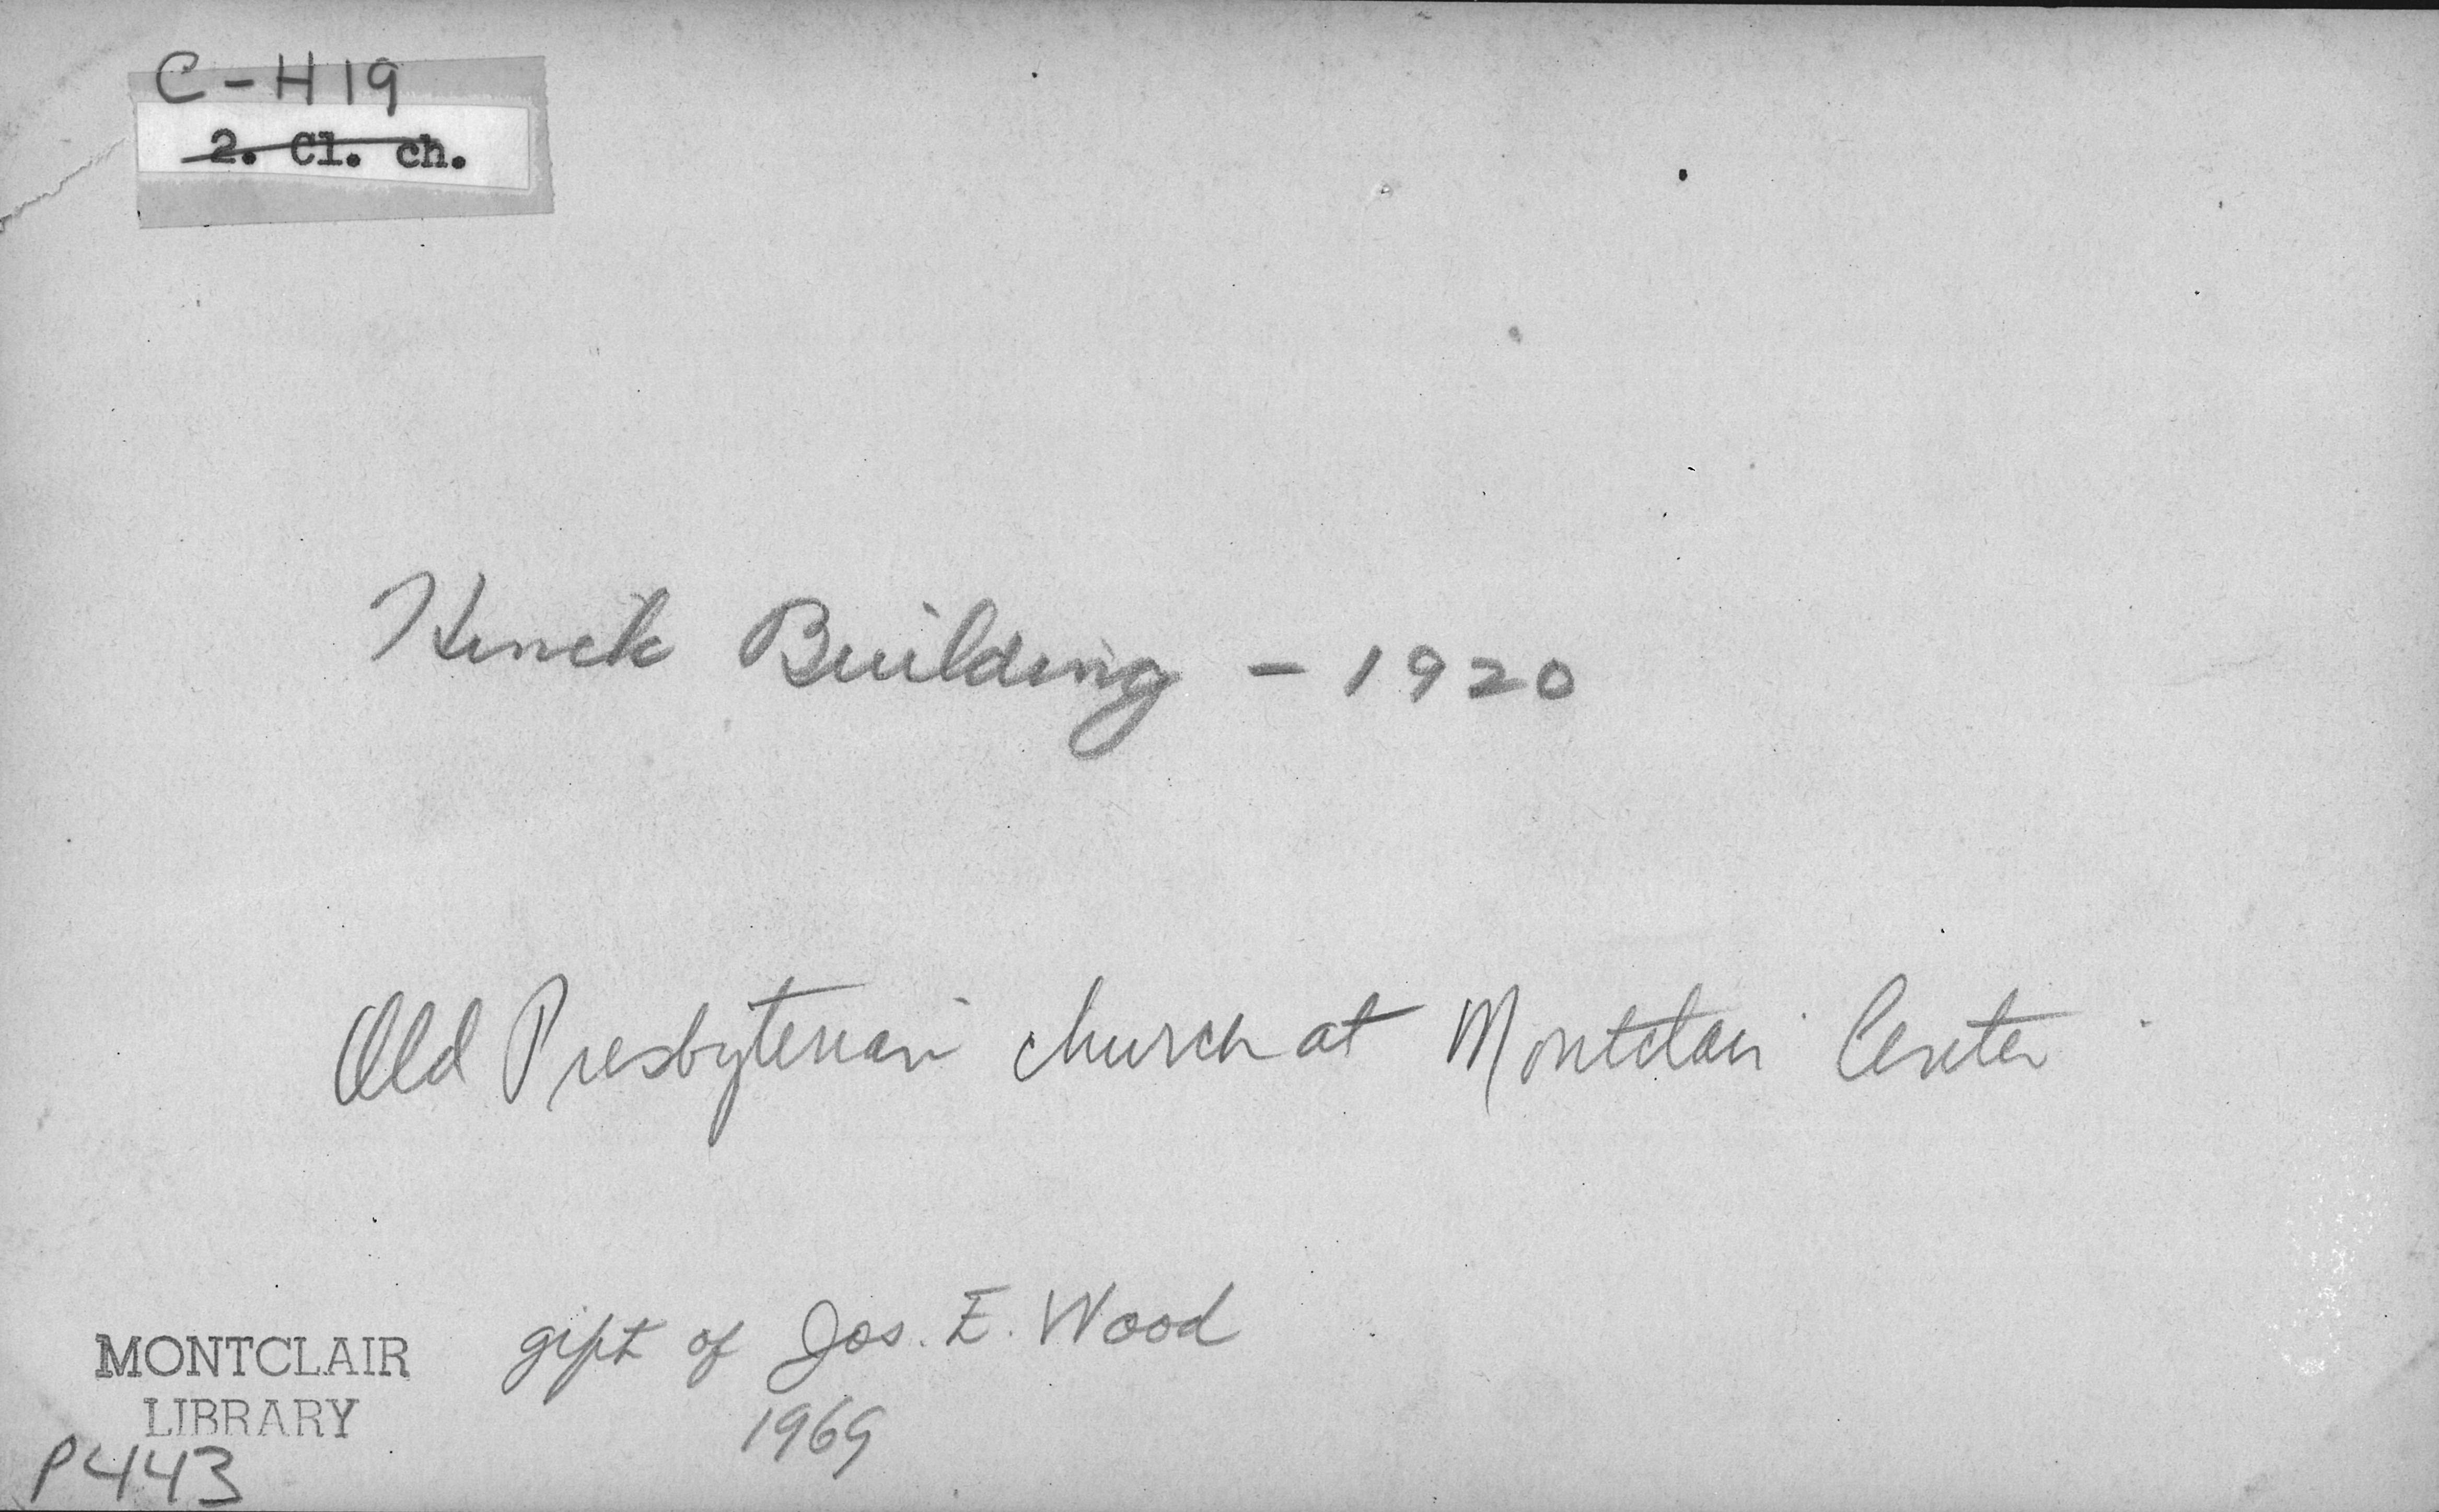 C-H19
2. Cl. ch.
Hinck Building - 1920
Old Presbyterian church at Montclair Center
gift of Jos. E. Wood
1969
MONTCLAIR
LIBRARY
P443